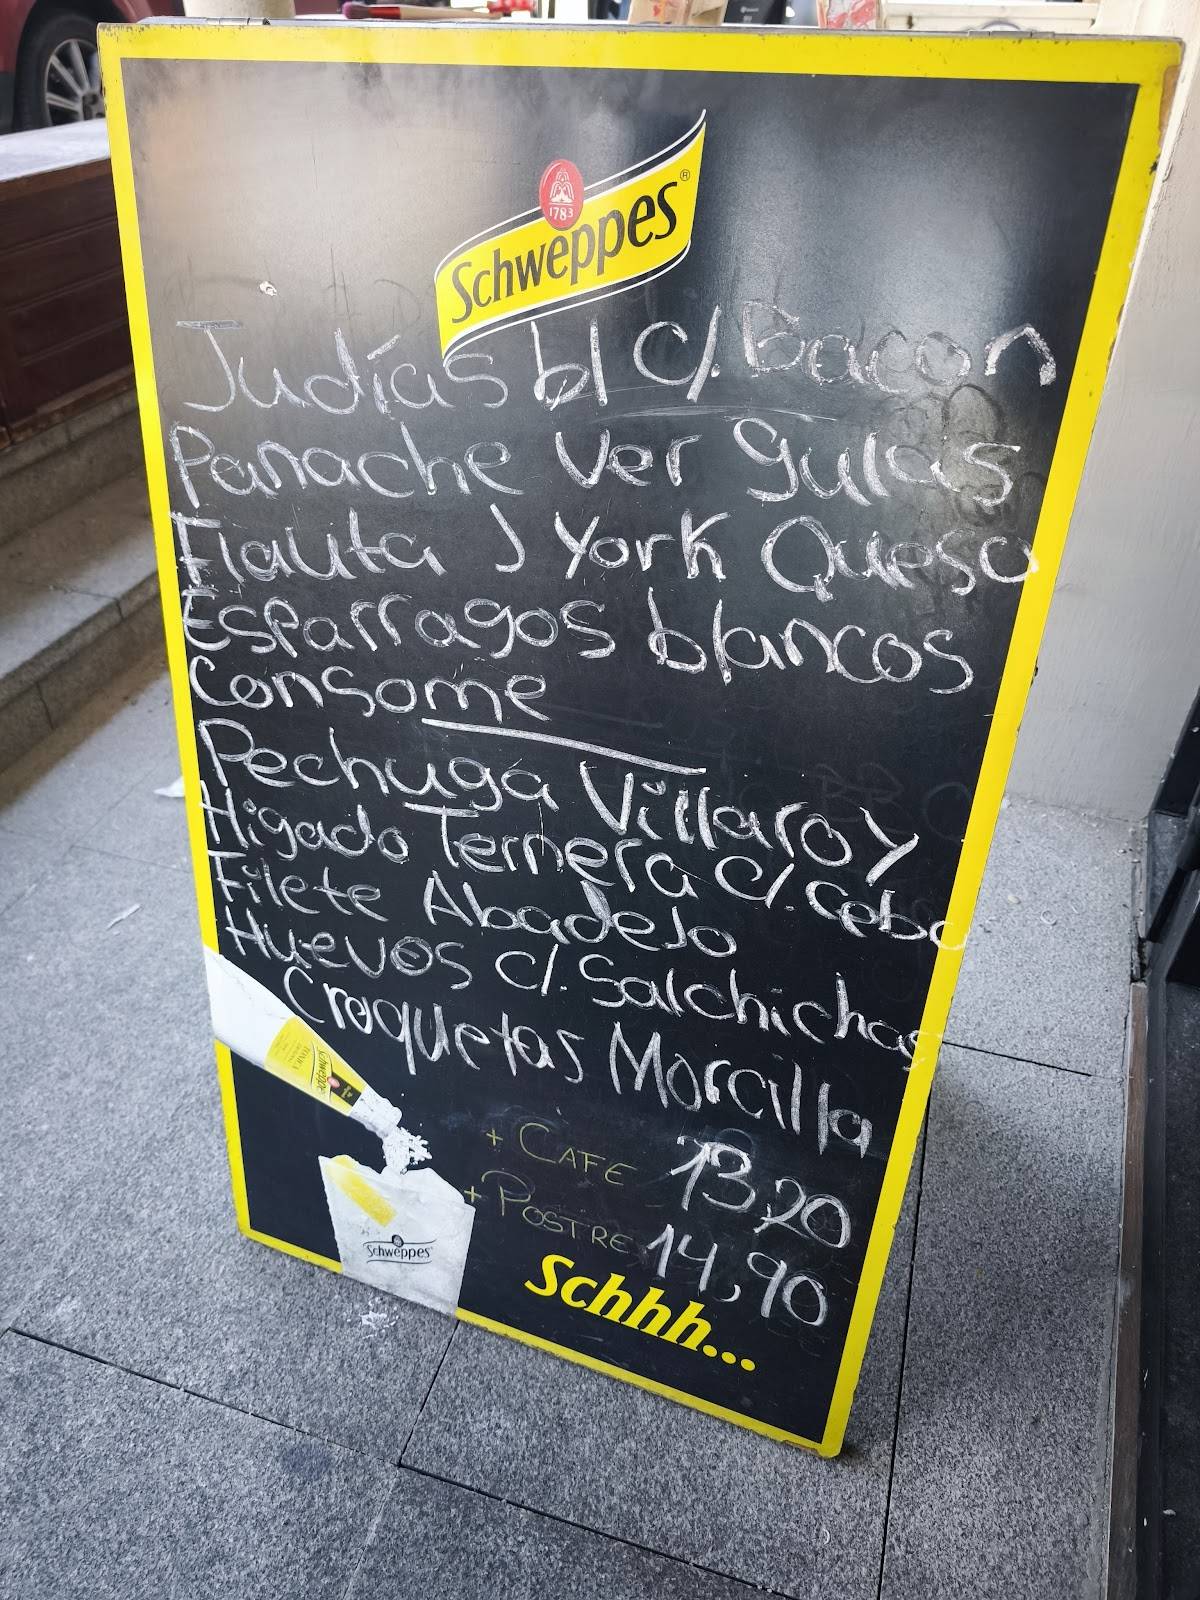 1783
Schweppes®
Judías bl c/. Bacon
Panache Ver gulas
Flauta J York Queso
Esparragos blancos
Consome
Pechuga Villaroy
Higado Ternera c/. Cebo
Filete Abadejo
Huevos c/. Salchichas
Croquetas Morcilla
+ CAFE 13,20
+ POSTRE 14,90
Schweppes
Schweppes
Schhh...